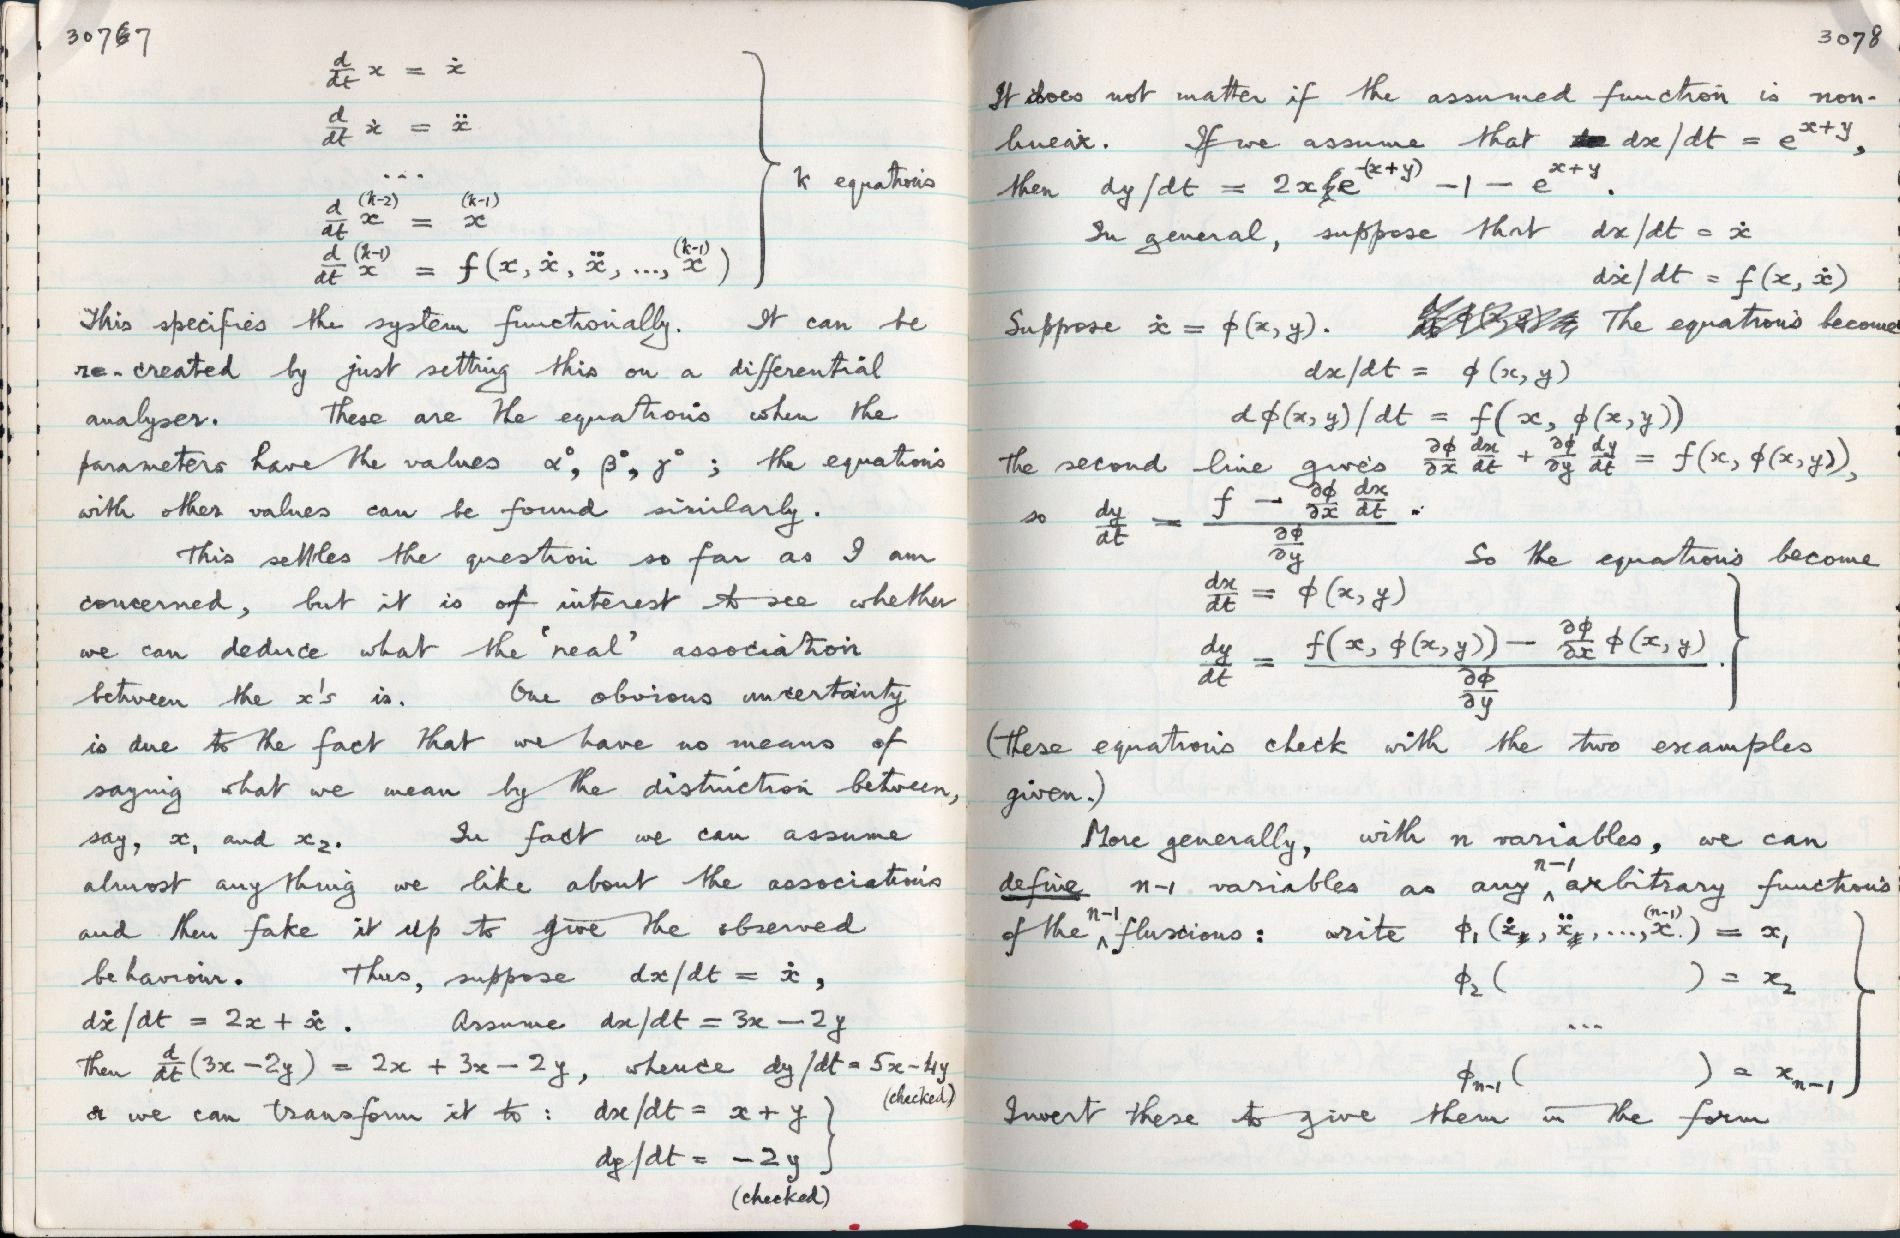 30767
d/dt x = ẋ
d/dt ẋ = ẍ
...
d/dt x^(k-2) = x^(k-1)
d/dt x^(k-1) = f(x, ẋ, ẍ, ..., x^(k-1))
k equations
This specifies the system functionally. It can be
re-created by just setting this on a differential
analyser. These are the equations when the
parameters have the values α°, β°, γ° ; the equations
with other values can be found similarly.
This settles the question so far as I am
concerned, but it is of interest to see whether
we can deduce what the 'real' association
between the x's is. One obvious uncertainty
is due to the fact that we have no means of
saying what we mean by the distinction between,
say, x₁ and x₂. In fact we can assume
almost anything we like about the associations
and then fake it up to give the observed
behaviour. Thus, suppose dx/dt = ẋ,
dẋ/dt = 2x + ẋ. Assume dx/dt = 3x − 2y
Then d/dt (3x − 2y) = 2x + 3x − 2y, whence dy/dt = 5x − 4y
(checked)
or we can transform it to: dx/dt = x + y
dy/dt = −2y
(checked)
3078
It does not matter if the assumed function is non-
linear. If we assume that dx/dt = e^(x+y),
then dy/dt = 2xe^-(x+y) − 1 − e^(x+y).
In general, suppose that dx/dt = ẋ
dẋ/dt = f(x, ẋ)
Suppose ẋ = φ(x, y). The equations become
dx/dt = φ(x, y)
dφ(x, y)/dt = f(x, φ(x, y))
The second line gives ∂φ/∂x dx/dt + ∂φ/∂y dy/dt = f(x, φ(x, y)),
so dy/dt = (f − ∂φ/∂x dx/dt) / (∂φ/∂y).
So the equations become
dx/dt = φ(x, y)
dy/dt = (f(x, φ(x, y)) − ∂φ/∂x φ(x, y)) / (∂φ/∂y).
(These equations check with the two examples
given.)
More generally, with n variables, we can
define n-1 variables as any n-1 arbitrary functions
of the n-1 fluxions: write φ₁(ẋ, ẍ, ..., x^(n-1)) = x₁
φ₂( ) = x₂
...
φn-1( ) = xn-1
Invert these to give them in the form